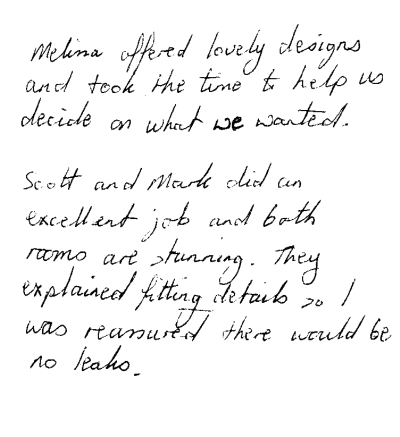 Melina offered lovely designs
and took the time to help us
decide on what we wanted.
Scott and Mark did an
excellent job and both
rooms are stunning. They
explained fitting details so I
was reassured there would be
no leaks.